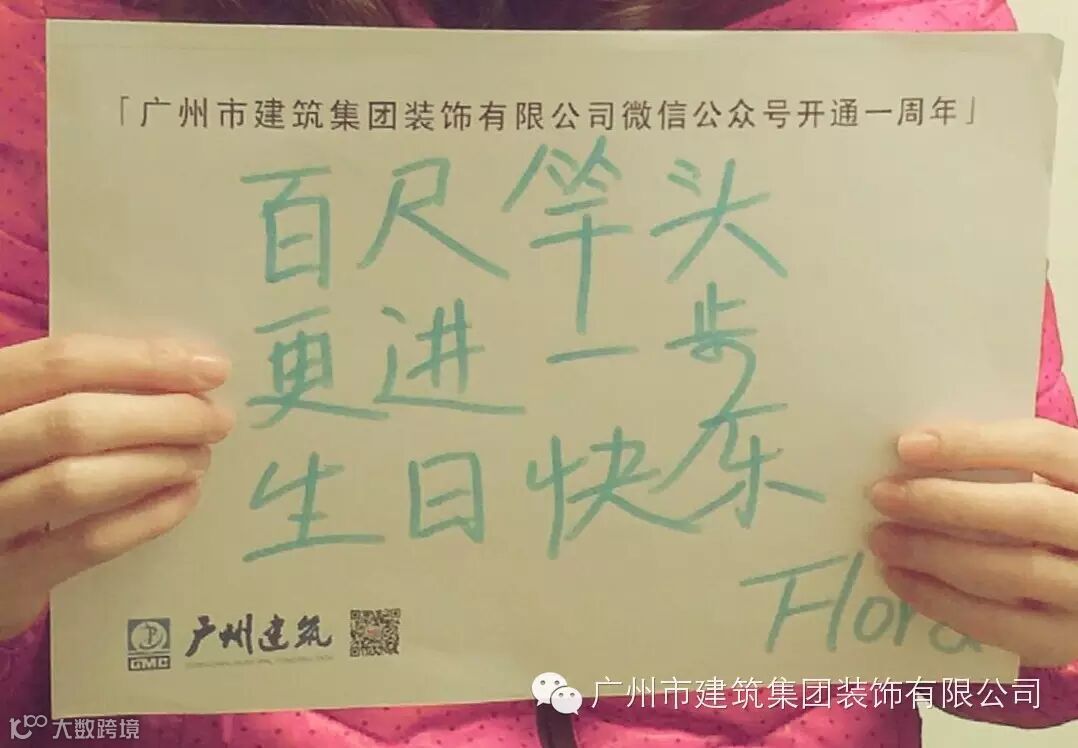 「广州市建筑集团装饰有限公司微信公众号开通一周年」
百尺竿头
更进一步
生日快乐
Flora
GMC
广州建筑
广州市建筑集团装饰有限公司
大数跨境